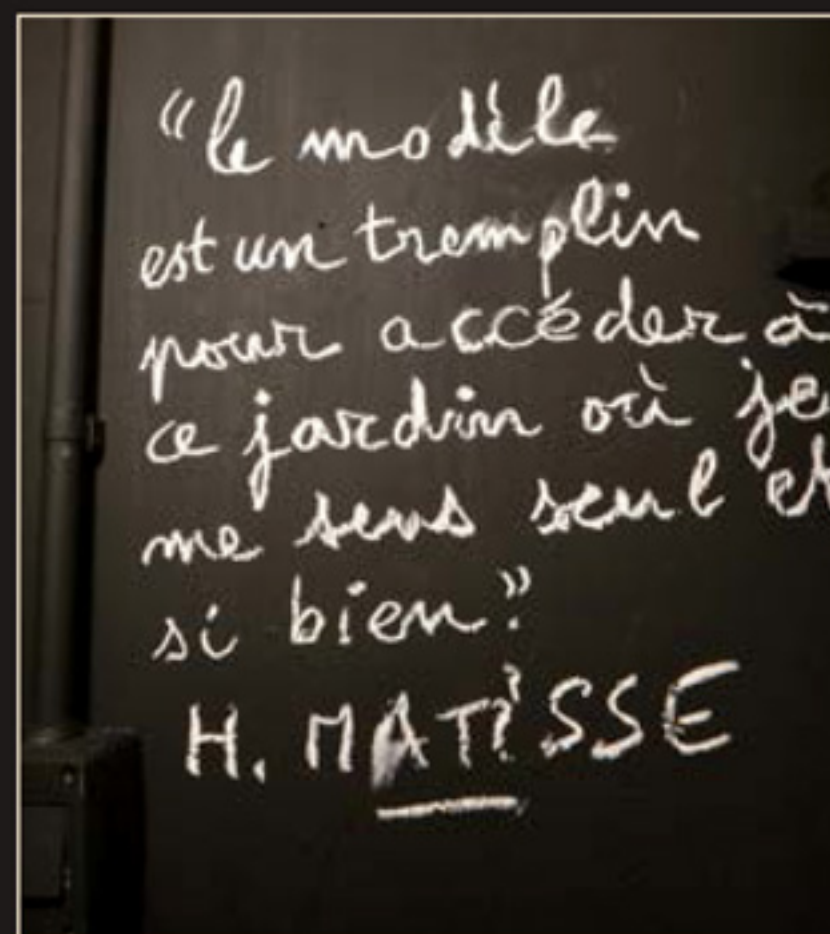 “le modèle
est un tremplin
pour accéder à
ce jardin où je
me sens seul et
si bien”
H. MATISSE